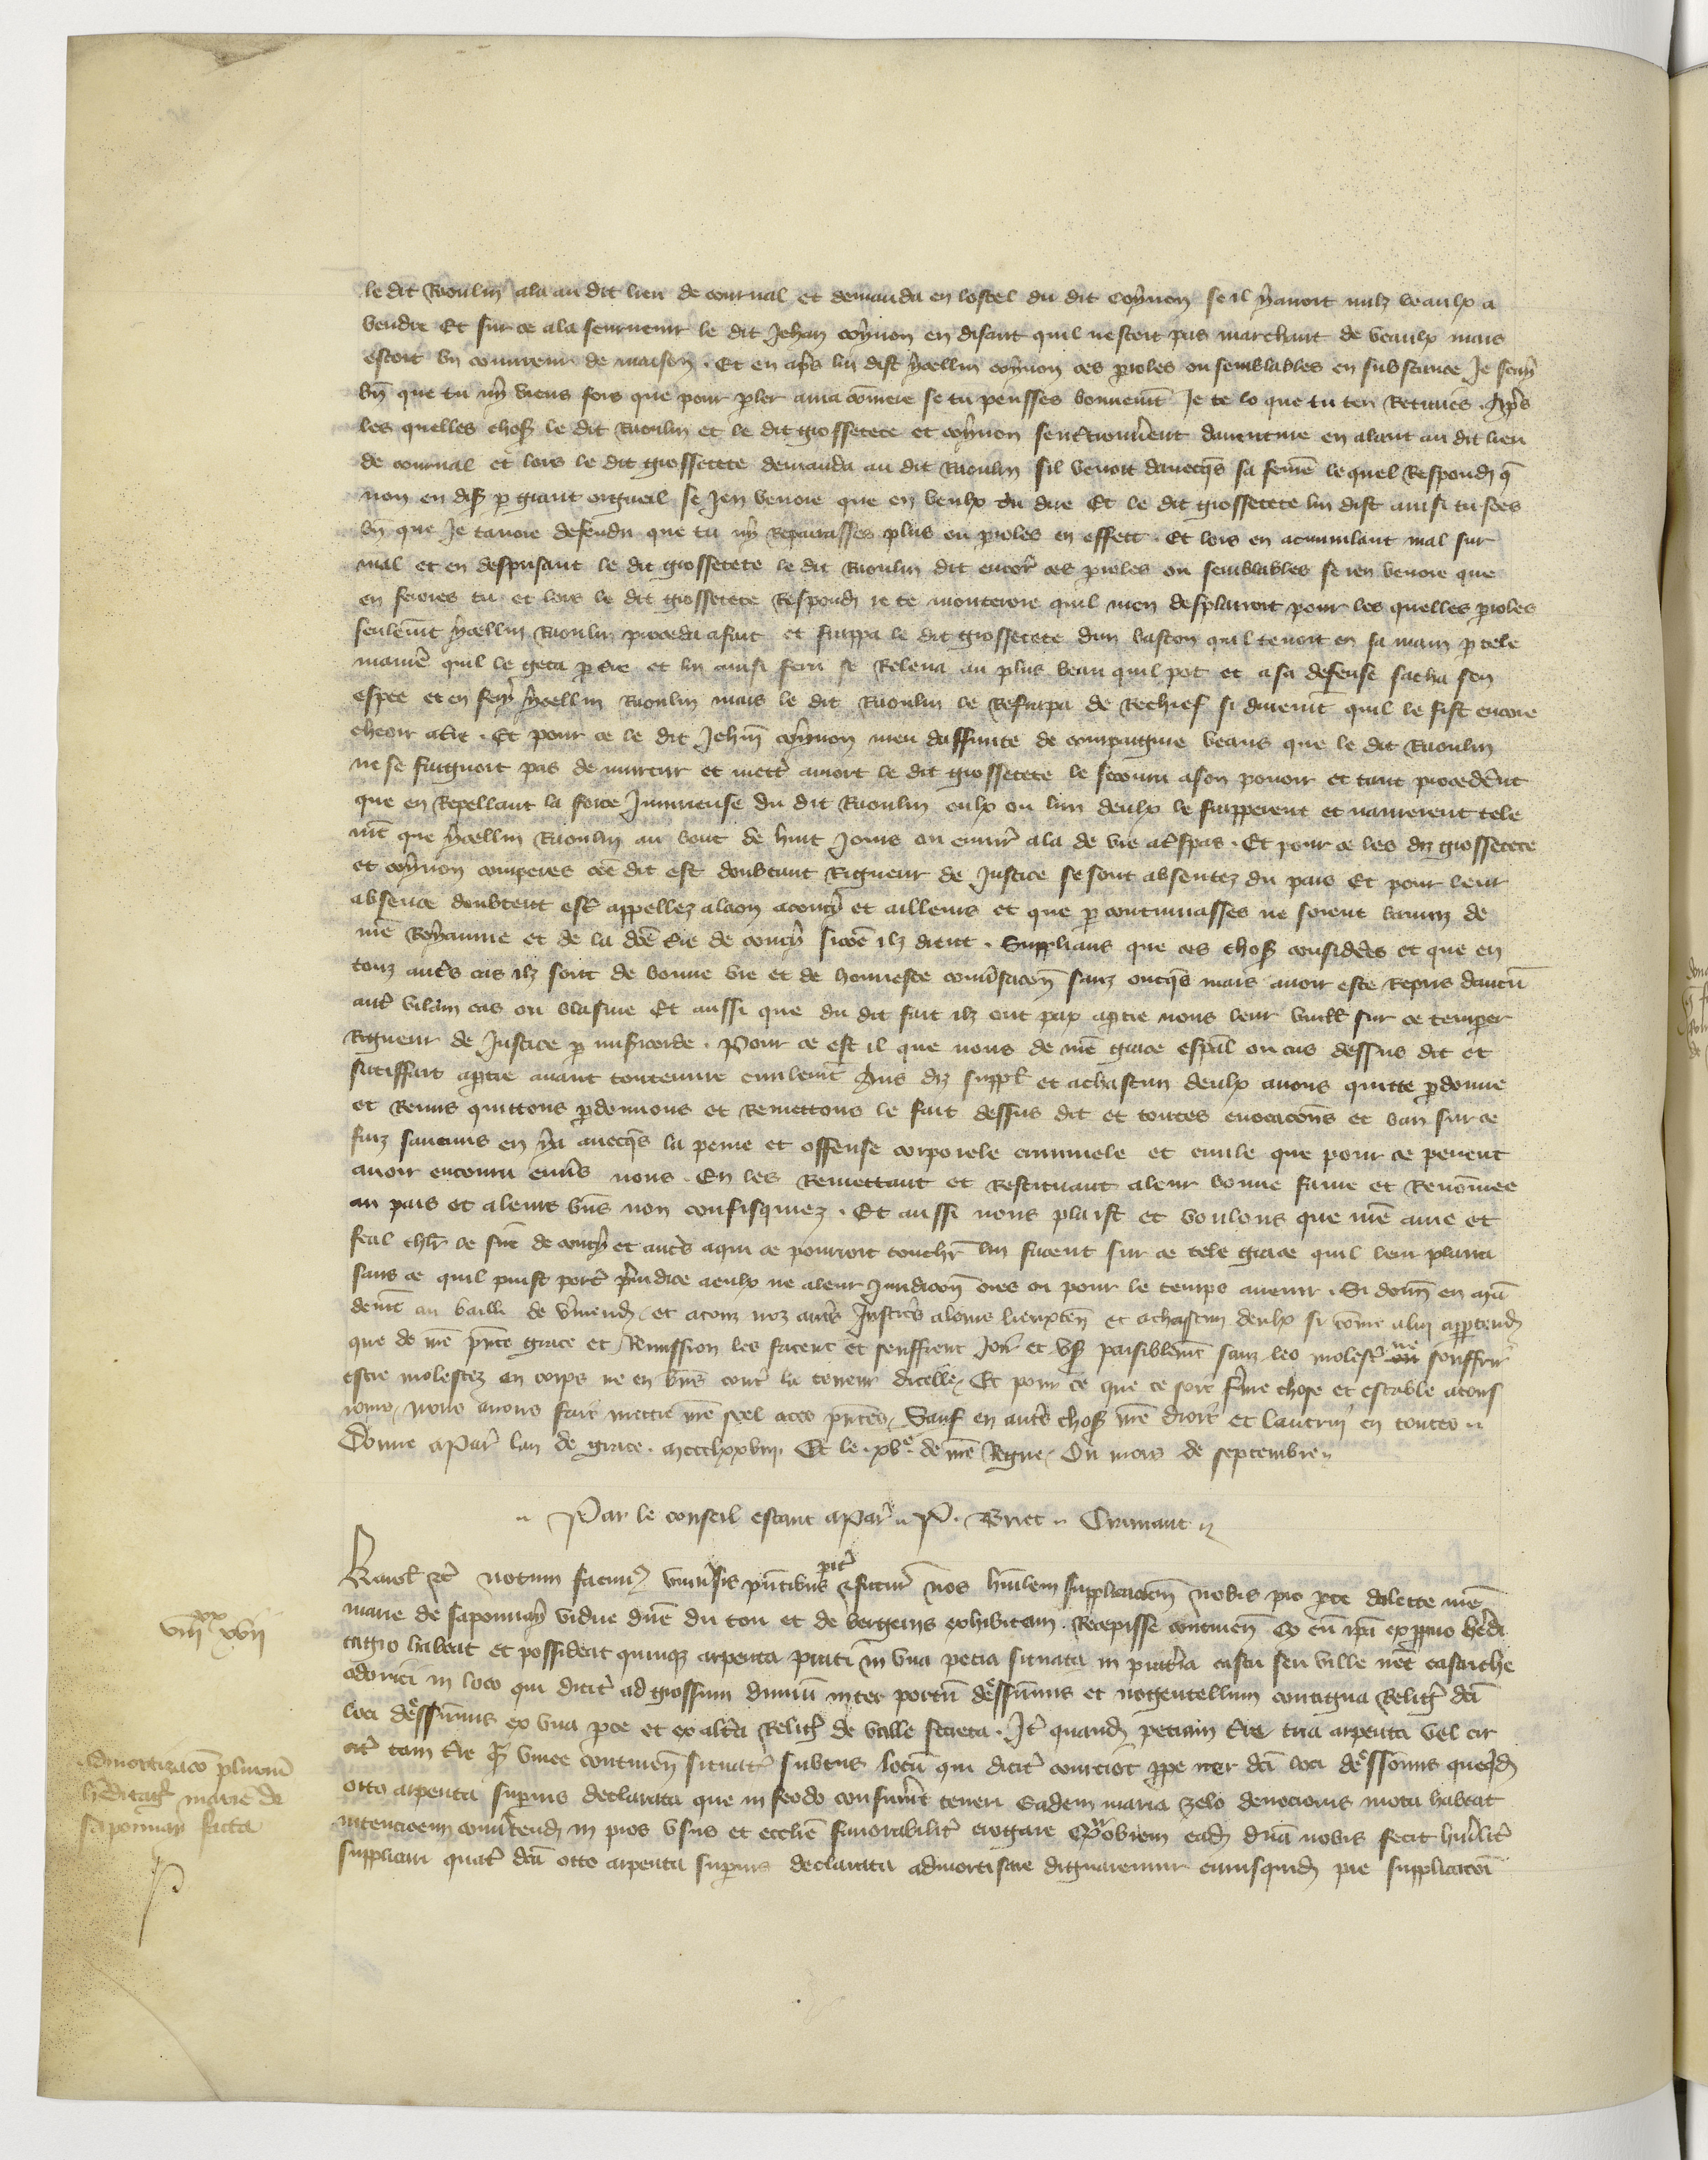 le dit Raoulin ala au dit lieu de cournal et demanda en lostel du dit coynon se il y avoit nulz veaulx a
vendre Et sur ce ala seurvenir le dit Jehan coynon en disant quil nestoit pas marchant de veaulx mais
estoit un de maison. Et en apres lui dist ycellui coynon ces paroles ou semblables en substance Je scay
bn que tu ny viens fors que pour parler a ma comere se tu pensses bonnement Je te lo que tu ten retraies. Apres
les quelles choses le dit Raoulin et le dit grossetete et coynon sentrouverent daventure en alant au dit lieu
de cournal et lors le dit grossetete demanda au dit Raoulin sil venoit davecques sa feme lequel respondi que
non en disant par grant orgueil se Jen venoie que en veulx tu dire Et le dit grossetete lui dist ainsi tu sces
bn que Je tavoie defendu que tu ny repairasses plus ou paroles en effect. Et lors en acumulant mal sur
mal et en desprisant le dit grossetete le dit Raoulin dit encores ces paroles ou semblables se ien venoie que
en feroies tu et lors le dit grossetete respondi ie te monteroie quil men desplairoit pour les quelles paroles
seulement ycellui Raoulin proceda a fait et frappa le dit grossetete dun baston quil tenoit en sa main par tele
maniere quil le geta par terre et lui ainsi feru se releva au plus beau quil pot et a sa defense sacha son
espee et en fery ycellui Raoulin mais le dit Raoulin le refrapa de rechief si durement quil le fist encore
cheoir a terre. Et pour ce le dit Jehan coynon meu daffinite de compaignie veans que le dit Raoulin
ne se faignoit pas de murtrir et mettre a mort le dit grossetete le secouru a son povoir et tant procederent
que en repellant la force Iniurieuse du dit Raoulin eulx ou lun deulx le frapperent et navrerent tele
ment que ycellui Raoulin au bout de huit Jours ou environ ala de vie a trespas. Et pour ce les diz grossetete
et coynon comperes come dit est doubtant rigueur de Justice se sont absentez du pais Et pour leur
absence doubtent estre appellez a laon a coucy et ailleurs et que par contumasses ne soient banniz de
nostre Royaume et de la dicte terre de coucy sicome ilz dient. Supplians que ces choses considerees et que en
touz autres cas ilz sont de bonne vie et de honneste conversacion sanz oncques mais avoir este repris daucun
autre vilain cas ou blasme Et aussi que du dit fait ilz ont paix a partie nous leur vueillons sur ce temperer
rigueur de Justice par misericorde. Pour ce est il que nous de nostre grace especial ou cas dessus dit et
satiffait a partie avant toute euvre civilement Aus diz suppl et a chascun deulx avons quitte pardonne
et remis quittons pardonnons et remettons le fait dessus dit et toutes evocacions et ban sur ce
faiz saucuns en y a avecques la peine et offense corporele criminele et civile que pour ce pevent
avoir encouru envers nous. En les remettant et restituant a leur bonne fame et renommee
au pais et a leurs biens non confisquiez. Et aussi nous plaist et voulons que nostre ame et
feal chlr le sire de coucy et autres a qui ce pourroit toucher leur facent sur ce tele grace quil leur plaira
sans ce quil puist porter preiudice a eulx ne a leur Juridicion ores ou pour le temps avenir. Si donnons en man
dement au bailli de vermendois et a touz noz autres Justiciers a leurs lieuxten et a chascun deulx si come a lui appartendra
que de nostre presente grace et Remission les facent et seuffrent Joir et user paisiblement sanz les molester ne souffrir
estre molestez en corps ne en biens contre la teneur dicelle. Et pour ce que ce soit ferme chose et estable a tous
iours, nous avons fait mettre nostre scel a ces presentes. Sauf en autres choses nostre droit et lautruy en toutes.
Donne a Paris lan de grace. mccclxxviii. Et le .xve. de nostre Regne. Ou mois de septembre.
Par le conseil estant a Paris. P. Briet. Crimaut.
Karol etc notum facimus universis presentibus pariter et futuris nos humilem supplicacionem nobis pro parte dilecte nostre
marie de saponnay vidue domine du tou et de vergeius exhibitam. Recepisse continentem Quod cum ipsa ex proprio heredi
tagio habeat et possideat quinque arpenta prati in una pecia situata in prateria castri seu ville nostre castri the
odorici in loco qui dicitur ad grossum dumum inter portum dessinnis et nogentellum contigua Religiosis dicti
loci dessinnis ex una parte et ex altera Religiosis de valle secreta. Item quandam peciam terre tria arpenta vel cir
citer tam terre quam vinee continentem situatam subtus locum qui dicitur courciot prope iter dicti loci dessonnis quequidem
octo arpenta superius declarata que in feodo consueverunt teneri Eadem maria zelo devocionis mota habeat
intencionem convertendi in pios usus et ecclesie favorabiliter erogare Quamobrem eadem domina nobis fecit humiliter
supplicari quatenus dicta octo arpenta superius declarata admortisare dignaremur eiusquidem pie supplicacioni
viii xx xvii
Admortizacio plurium
hereditag marie de
saponnay facta